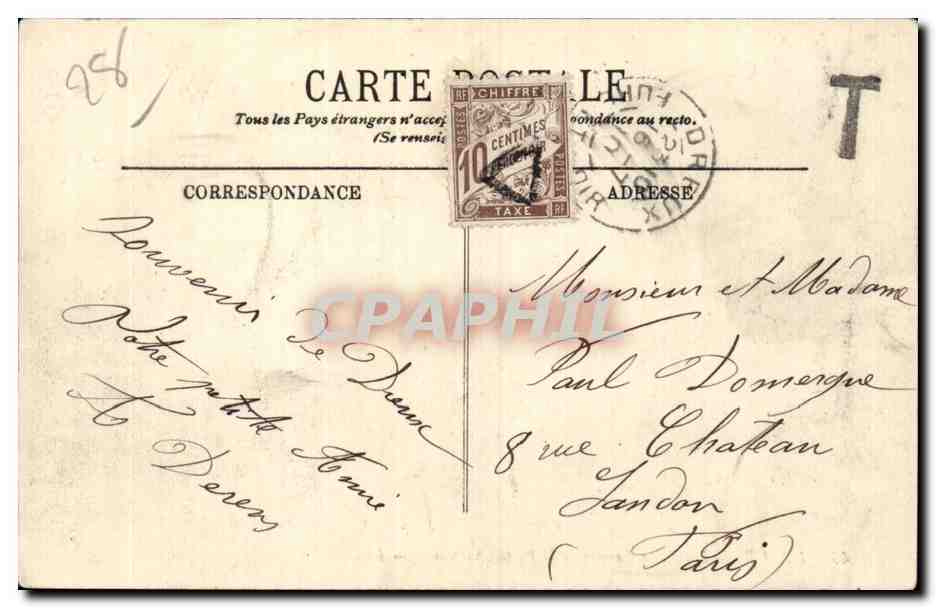 28
CARTE POSTALE
Tous les Pays étrangers n'accep pondance au recto.
(Se rensei
T
RF CHIFFRE RF
POSTES
10 CENTIMES
À PERCEVOIR
POSTES
TAXE RF
DREUX
CORRESPONDANCE
ADRESSE
Souvenir
de Dreux
Votre petite Amie
A Derens
Monsieur et Madame
Paul Domergue
8 rue Chateau
Landon
(Paris)
CPAPHIL